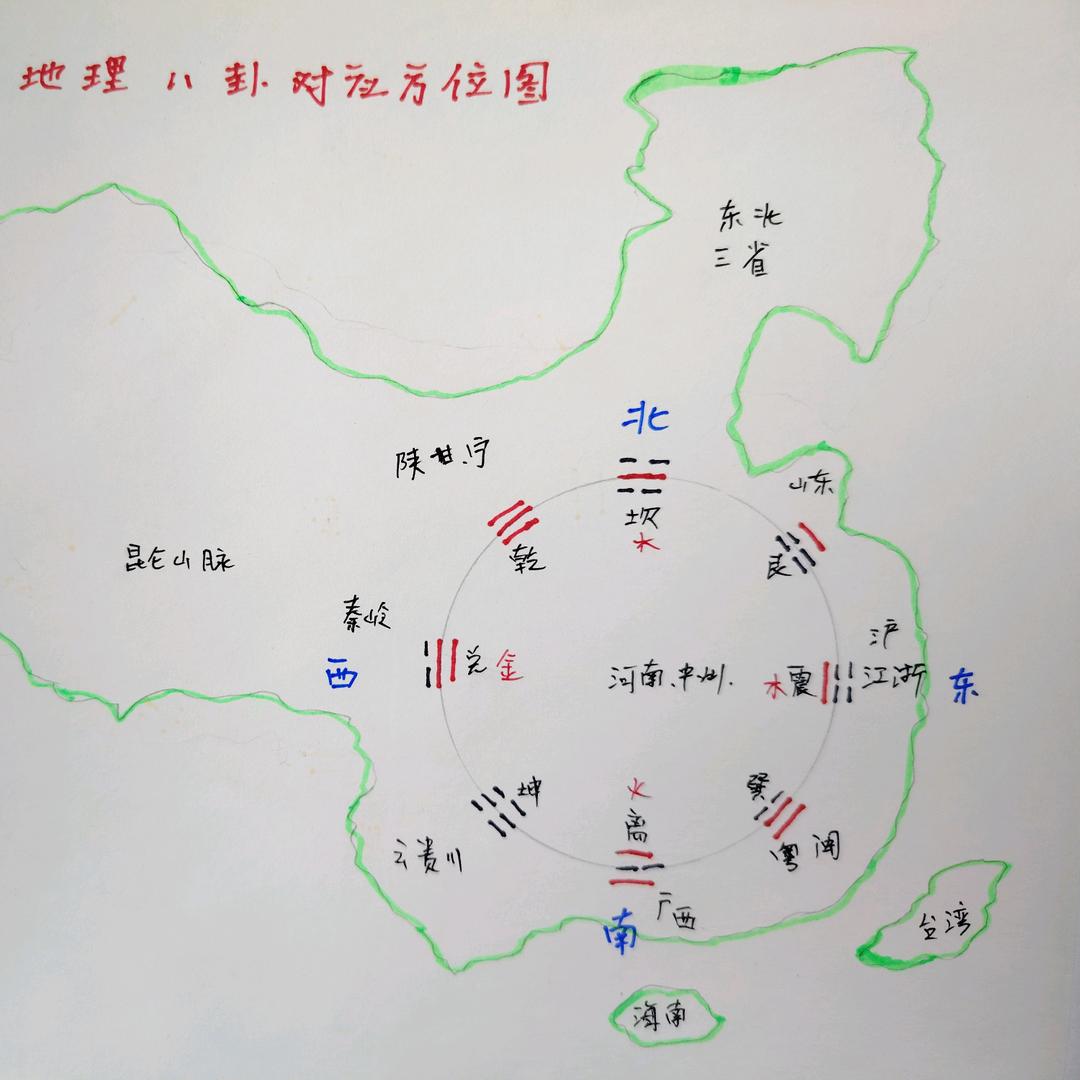 地理八卦对应方位图
东北
三省
北
陕甘.宁
坎
水
山东
乾
艮
昆仑山脉
秦岭
西
兑 金
河南、中州.
木 震
沪
江浙
东
坤
火
离
巽
云贵川
粤闽
广西
南
台湾
海南